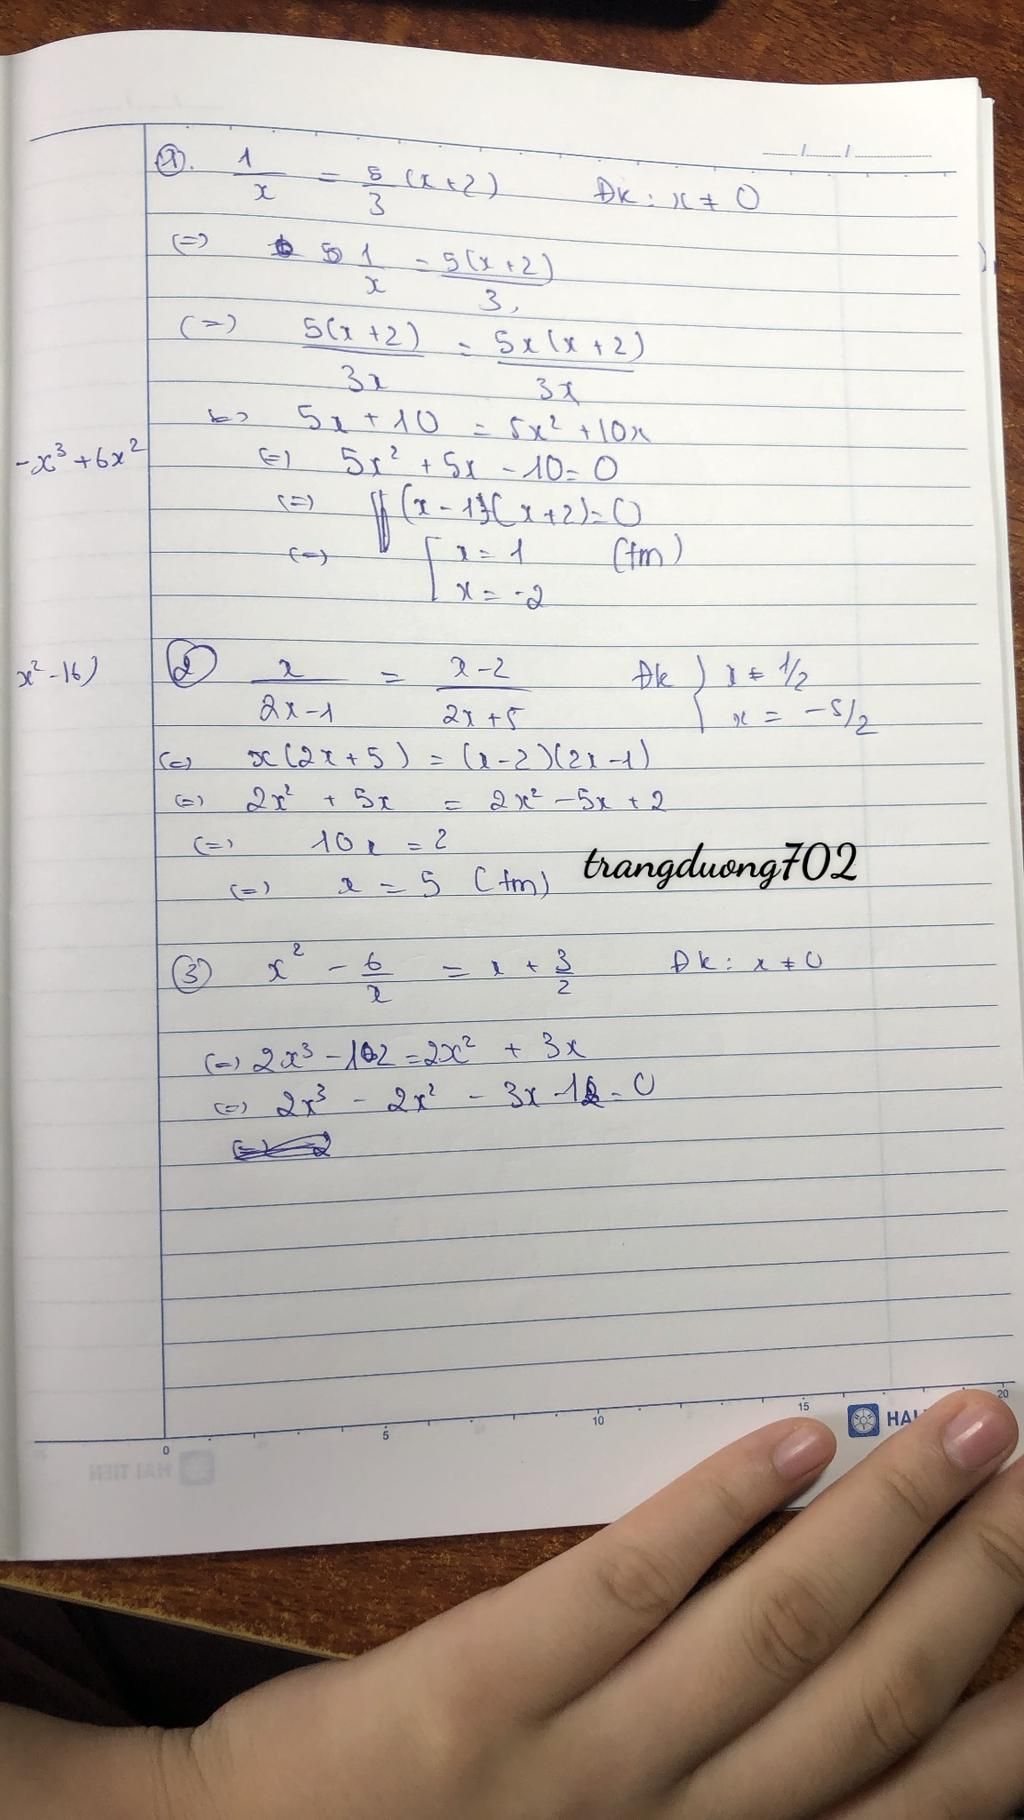 1. 1/x = 5/3 (x+2) Đk: x ≠ 0
(=) 1/x = 5(x+2)/3
(=) 5(x+2)/3x = 5x(x+2)/3x
(=) 5x + 10 = 5x² + 10x
-x³ + 6x²
(=) 5x² + 5x - 10 = 0
(=) (x - 1)(x+2) = 0
(=) [ x = 1 (tm)
x = -2
x² - 16)
2 x/(2x-1) = (x-2)/(2x+5) Đk { x ≠ 1/2
x = -5/2
(=) x(2x+5) = (x-2)(2x-1)
(=) 2x² + 5x = 2x² - 5x + 2
(=) 10x = 2
trangduong702
(=) x = 5 (tm)
3 x² - 6/x = x + 3/2 Đk: x ≠ 0
(=) 2x³ - 12 = 2x² + 3x
(=) 2x³ - 2x² - 3x - 12 = 0
0 5 10 15 20
HẢI
HAI TIEN